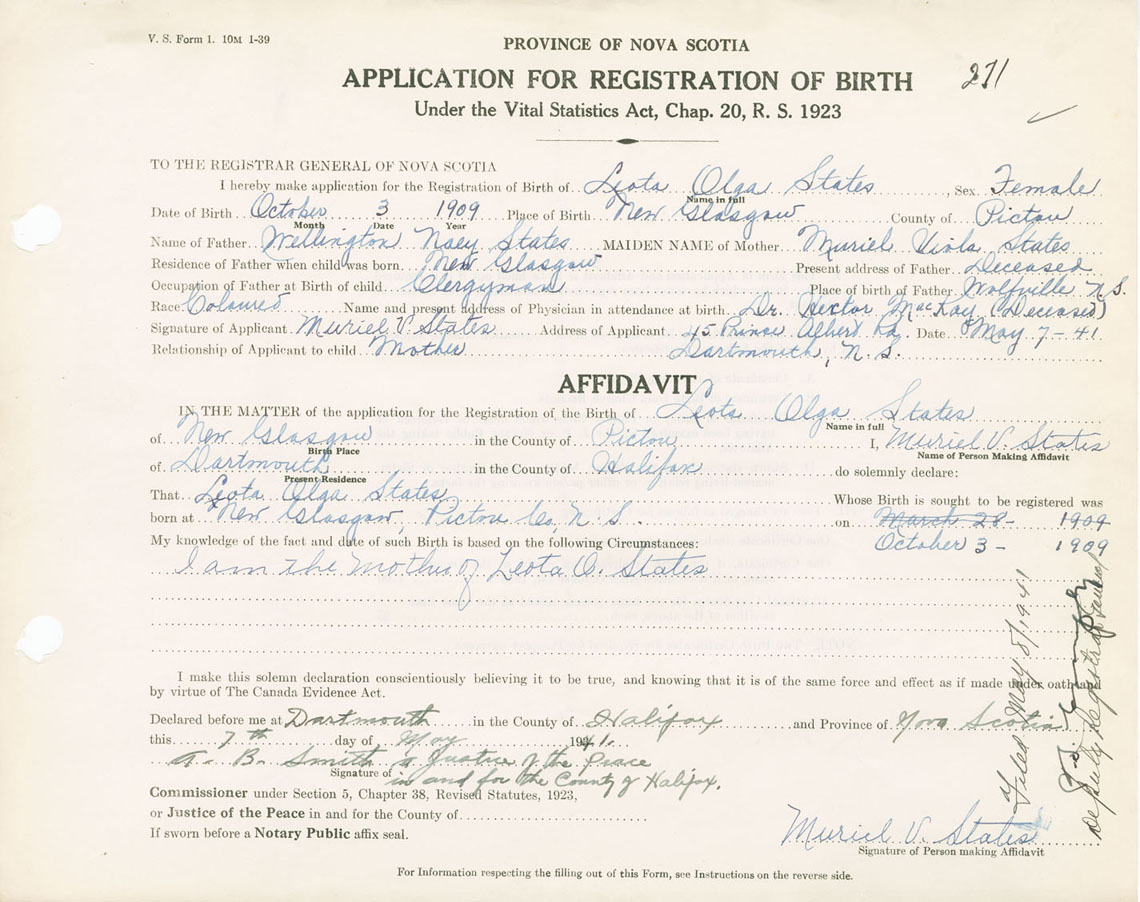 V. S. Form 1. 10M 1-39
PROVINCE OF NOVA SCOTIA
APPLICATION FOR REGISTRATION OF BIRTH 271
Under the Vital Statistics Act, Chap. 20, R. S. 1923
TO THE REGISTRAR GENERAL OF NOVA SCOTIA
I hereby make application for the Registration of Birth of Leota Olga States, Sex Female
Name in full
Date of Birth October 3 1909 Place of Birth New Glasgow County of Pictou
Month Date Year
Name of Father Wellington Naey States MAIDEN NAME of Mother Muriel Viola States
Residence of Father when child was born New Glasgow Present address of Father Deceased
Occupation of Father at Birth of child Clergyman Place of birth of Father Wolfville N.S.
Race Coloured Name and present address of Physician in attendance at birth Dr. Hector MacKay (Deceased)
Signature of Applicant Muriel V. States Address of Applicant 45 Prince Albert Rd. Date May 7-41
Relationship of Applicant to child Mother Dartmouth, N.S.
AFFIDAVIT
IN THE MATTER of the application for the Registration of the Birth of Leota Olga States
Name in full
of New Glasgow in the County of Pictou I, Muriel V. States
Birth Place Name of Person Making Affidavit
of Dartmouth in the County of Halifax do solemnly declare:
Present Residence
That Leota Olga States Whose Birth is sought to be registered was
born at New Glasgow, Pictou Co. N.S. on March 28- 1909
October 3- 1909
My knowledge of the fact and date of such Birth is based on the following Circumstances:
I am the Mother of Leota O. States
I make this solemn declaration conscientiously believing it to be true, and knowing that it is of the same force and effect as if made under oath and
by virtue of The Canada Evidence Act.
Declared before me at Dartmouth in the County of Halifax and Province of Nova Scotia
this 7th day of May 1941.
A. B. Smith a Justice of the Peace
Signature of in and for the County of Halifax.
Commissioner under Section 5, Chapter 38, Revised Statutes, 1923,
or Justice of the Peace in and for the County of
If sworn before a Notary Public affix seal.
Muriel V. States
Signature of Person making Affidavit
For Information respecting the filling out of this Form, see Instructions on the reverse side.
Filed May 8/1941
Deputy Registrar General